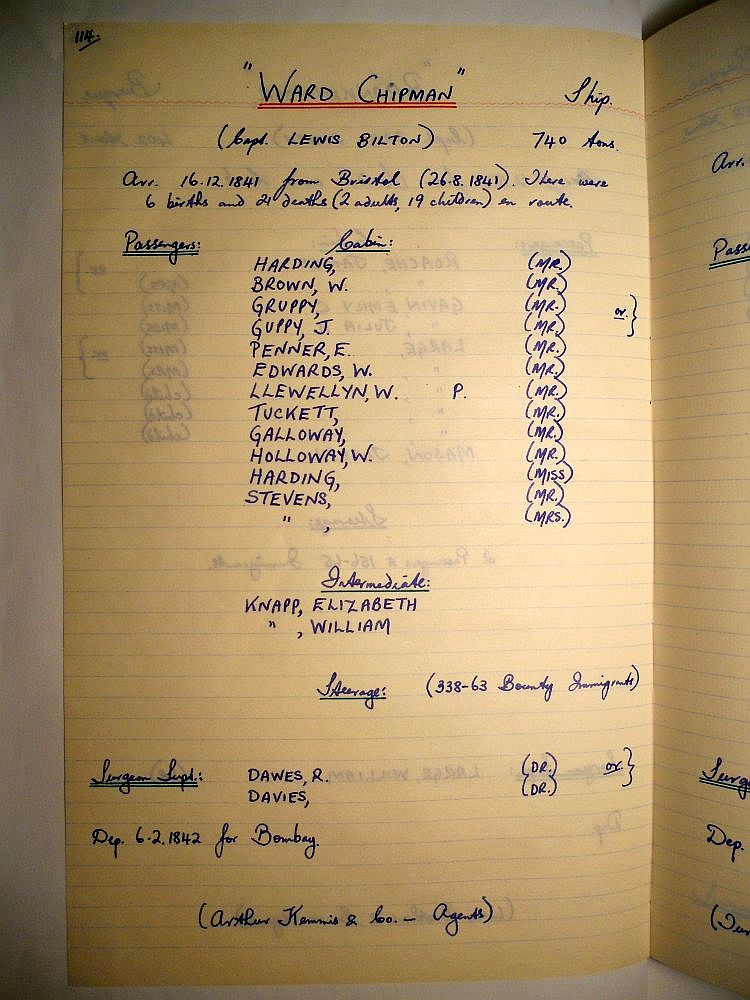 114.
"WARD CHIPMAN" Ship.
(Capt. LEWIS BILTON) 740 tons.
Arr. 16.12.1841 from Bristol (26.8.1841). There were
6 births and 21 deaths (2 adults, 19 children) en route.
Passengers: Cabin:
HARDING, (MR.)
BROWN, W. (MR.)
GRUPPY, (MR.) or }
GUPPY, J. (MR.)
PENNER, E. (MR.)
EDWARDS, W. (MR.)
LLEWELLYN, W. P. (MR.)
TUCKETT, (MR.)
GALLOWAY, (MR.)
HOLLOWAY, W. (MR.)
HARDING, (MISS)
STEVENS, (MR.)
" , (MRS.)
Intermediate:
KNAPP, ELIZABETH
" , WILLIAM
Steerage: (338-63 Bounty Immigrants)
Surgeon Supt.: DAWES, R. (DR.) or }
DAVIES, (DR.)
Dep. 6.2.1842 for Bombay.
(Arthur Kemmis & Co. — Agents)
Arr.
Dep.